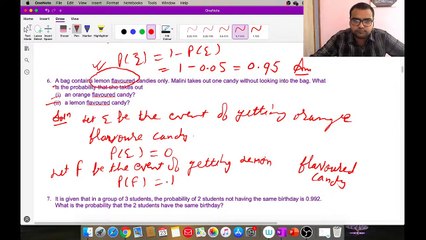 OneNote
Home Insert Draw View
P(E̅) = 1 - P(E)
= 1 - 0.05 = 0.95 Ans
6. A bag contains lemon flavoured candies only. Malini takes out one candy without looking into the bag. What
is the probability that she takes out
(i) an orange flavoured candy?
(ii) a lemon flavoured candy?
Soln Let E be the event of getting orange
flavoure candy
P(E) = 0
Let F be the event of getting lemon flavoured
candy
P(F) = 1
7. It is given that in a group of 3 students, the probability of 2 students not having the same birthday is 0.992.
What is the probability that the 2 students have the same birthday?